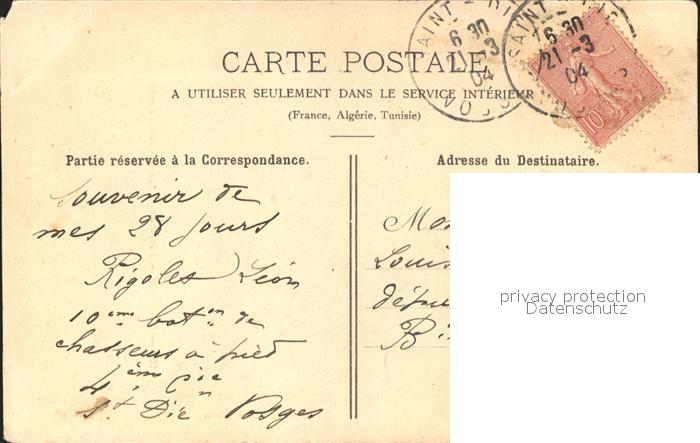 CARTE POSTALE
A UTILISER SEULEMENT DANS LE SERVICE INTÉRIEUR
(France, Algérie, Tunisie)
SAINT-DIÉ
6 30
21-3
04
VOSGES
SAINT-DIÉ
6 30
21-3
04
VOSGES
10
Partie réservée à la Correspondance.
Souvenir de
mes 28 jours
Rigoles Léon
10ème baton de
chasseurs à pied
4ème Cie
St Dié Vosges
Adresse du Destinataire.
Mon
Louis
dépu
B
privacy protection
Datenschutz